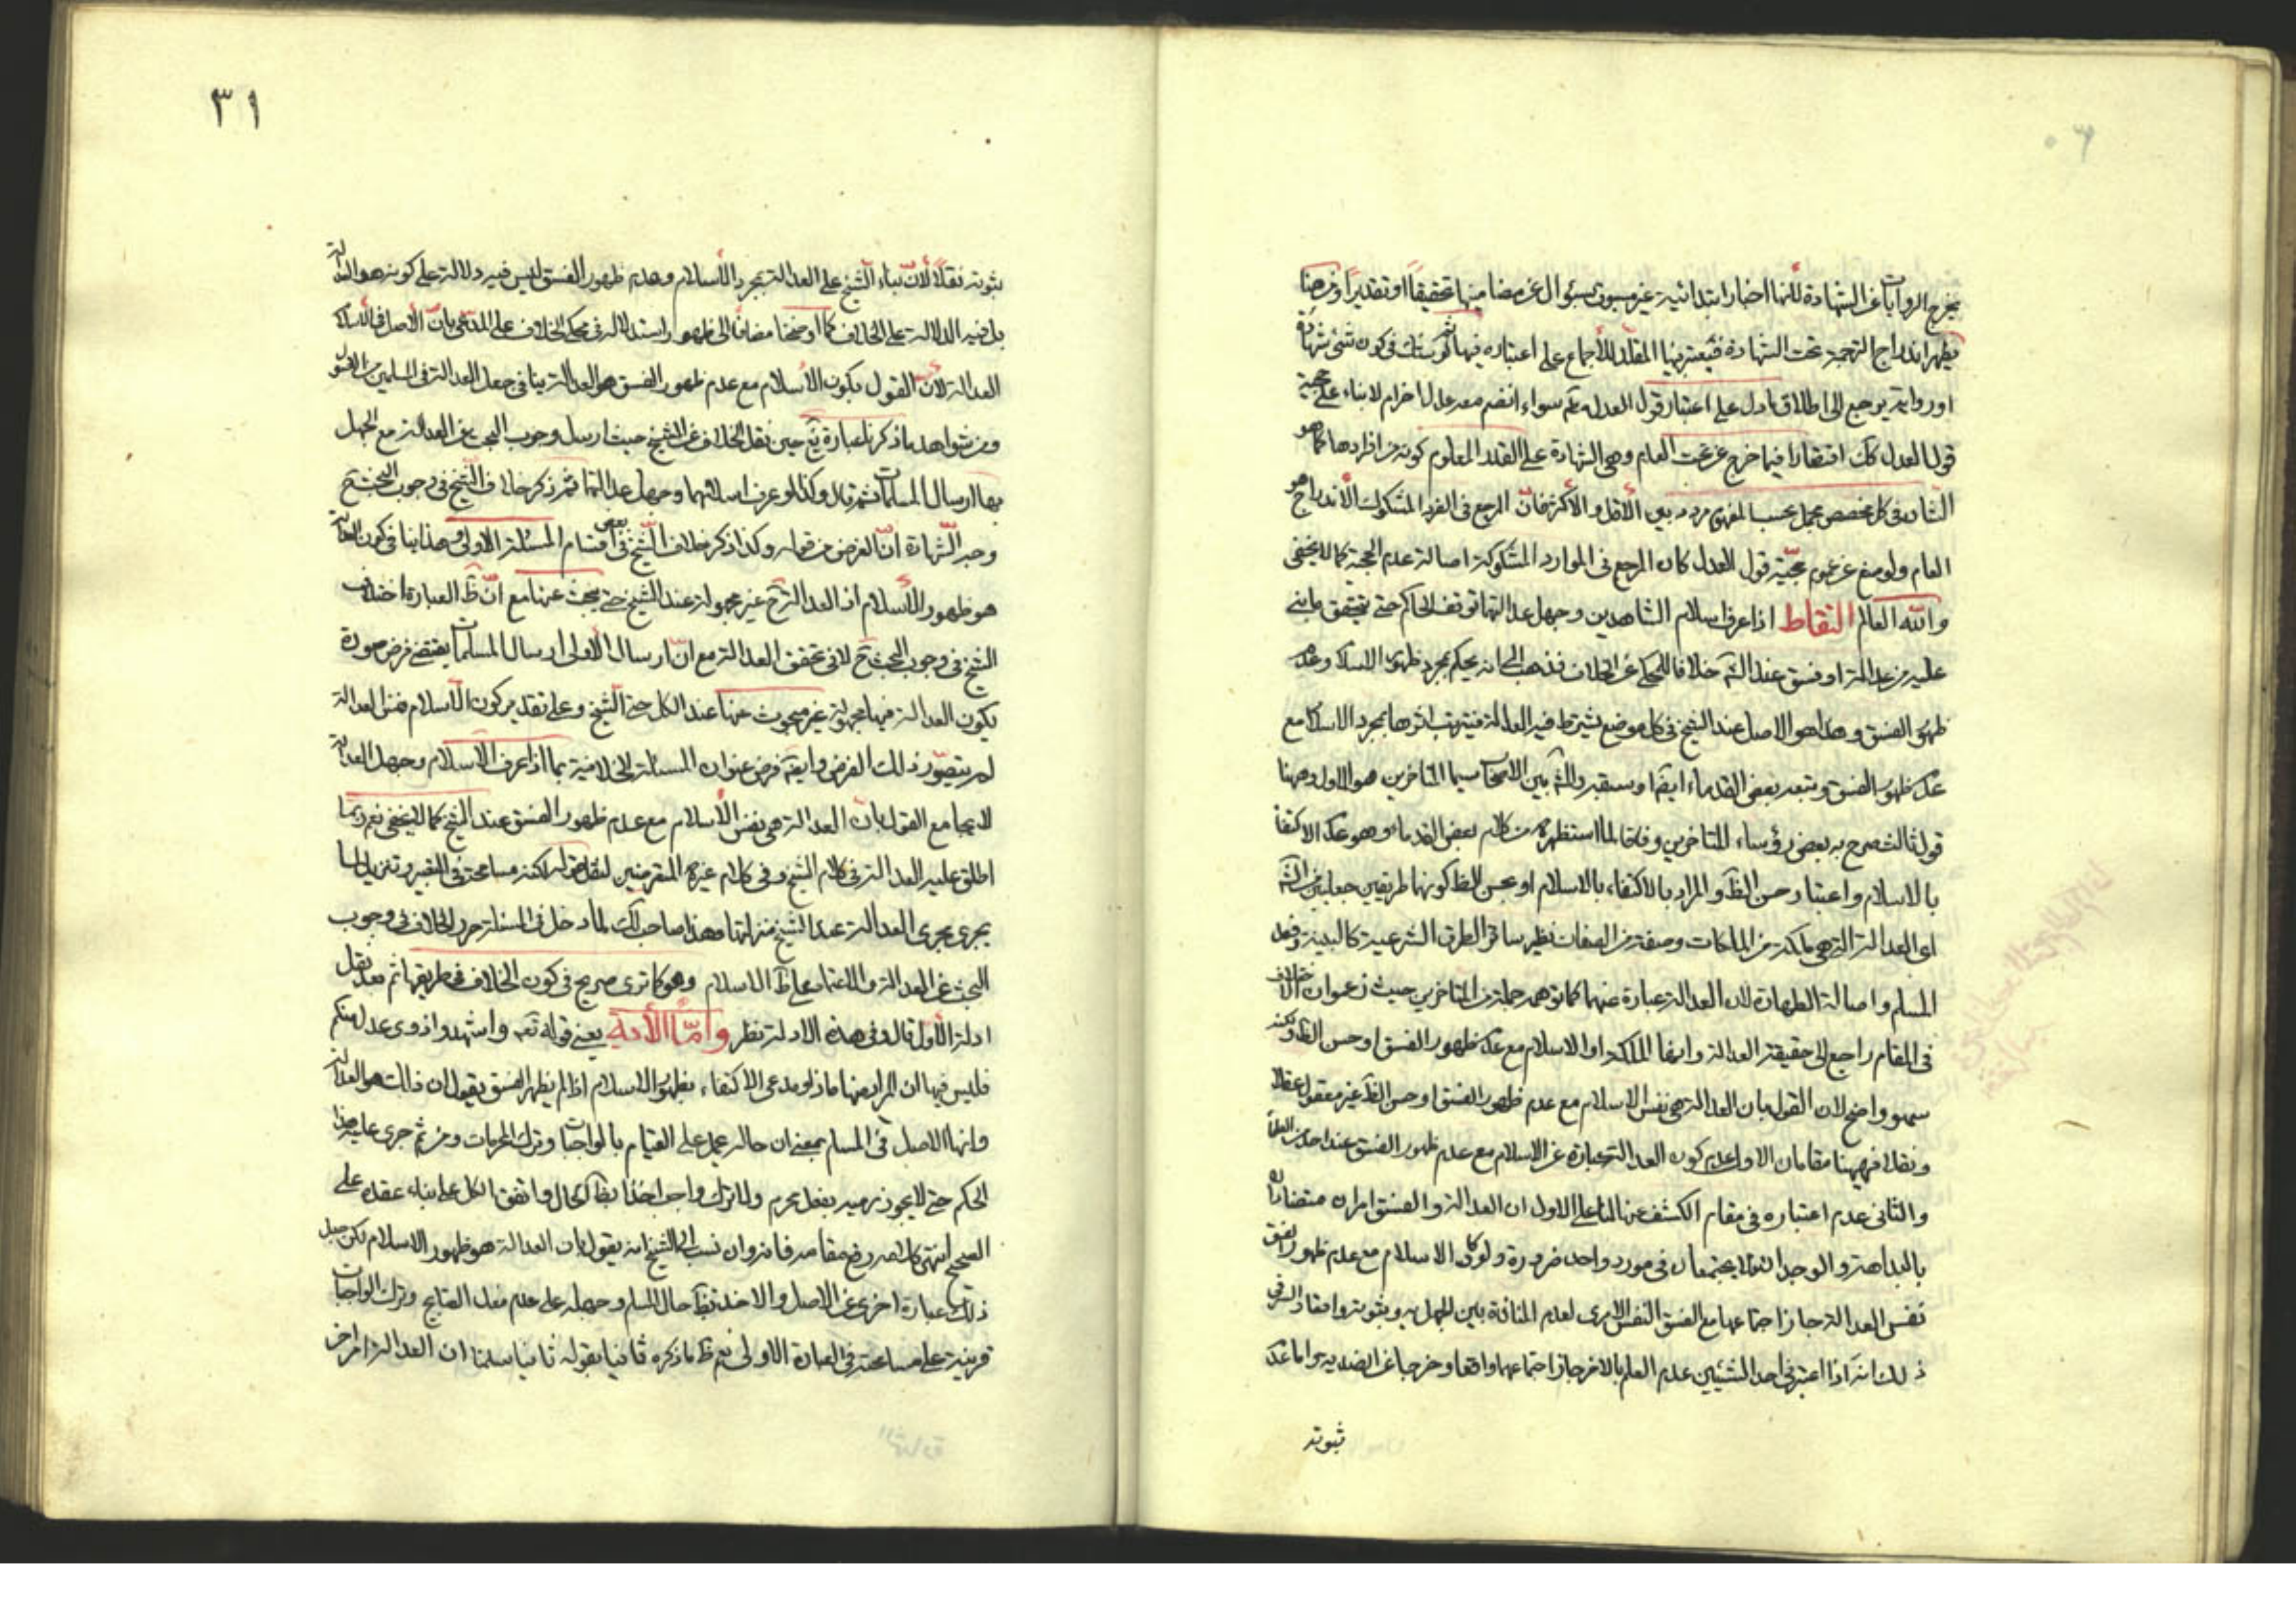 يخرج الروايات عن الشهادة لأنها اخبار ابتدائية غير مسبوق بسؤال عن مضامينها تحقيقاً او تقديراً ومن هنا
يظهر اندراج الترجمة تحت الشهادة فيعتبر فيها المقلد للأجماع على اعتباره فيها ثم لو شك في كون شئ شهادة
او رواية يرجع الى اطلاق ما دل على اعتبار قول العدل مثم سواء انضم معه عدل اخر ام لا بناء على حجية
قول العدل كك اقتصارا فيما خرج عن تحت العام وهي الشهادة على القدر المعلوم كونه من افرادها كما هو
الشان في كل مخصص مجمل بحسب المفهوم مردد بين الأقل والأكثر فانّ المرجع في الفرد المشكوك الأندراج هو
العام ولو منع عن عموم حجيّة قول العدل كان المرجع في الموارد المشكوكة اصالة عدم الحجية كما لا يخفى
والله العالم التقاط اذا عرف اسلام الشاهدين وجهل عدالتهما توقف الحاكم حتى يتحقق ما يبنى
عليه من عدالة او فسق عند الشه خلافا للمحكي عن الخلاف فذهب الى انه يحكم بمجرد ظهور الاسلام وعدم
ظهور الفسق وهذا هو الاصل عند الشيخ في كل موضع يشترط فيه العدالة فيترتب اثرها بمجرد الاسلام مع
عدم ظهور الفسق وتبعه بعض القدماء ايضا والشه بين الاصحاب سيما المتأخرين هو الاول وهنا
قول ثالث صرح به بعض رؤساء المتأخرين وفاقا لما استظهره من كلام بعض القدماء وهو عدم الاكتفا
بالاسلام واعتبار حسن الظ والمراد بالاكتفاء بالاسلام او بحسن الظ كونهما طريقين جعليين
اى العدالة التي هي ملكة من الملكات وصفة من الصفات نظير سائر الطرق الشرعية كالبينة وفعل
المسلم واصالة الطهارة لان العدالة عبارة عنهما كما توهمه جملة من المتأخرين حيث زعموا ان الخلاف
في المقام راجع الى حقيقة العدالة وانها الملكة او الاسلام مع عدم ظهور الفسق او حسن الظ ولكنه
سهو واضح لان القول بان العدالة هي نفس الاسلام مع عدم ظهور الفسق او حسن الظ غير معقول عقلا
ونقلا فهيهنا مقامان الاول عدم كون العدالة عبارة عن الاسلام مع عدم ظهور الفسق عند احد من العلماء
والثاني عدم اعتباره في مقام الكشف عنها لنا على الاول ان العدالة والفسق امران متضادان
بالبداهة والوجدان لا يجتمعان في مورد واحد ضرورة ولو كان الاسلام مع عدم ظهور الفسق
نفس العدالة جاز اجتماعها مع الفسق النفس الامرى لعدم المنافاة بين الجهل به وثبوته واقعا والسر في
ذلك انه اذا اعتبر في احد الشيئين عدم العلم بالاخر جاز اجتماعهما واقعا وخرجا عن الضدية واما عدم
ثبوته
٣١
ثبوته نقلاً لأنّ بناء الشيخ على العدالة بمجرد الأسلام وعدم ظهور الفسق ليس فيه دلالة على كونه هو العدالة
بل فيه الدلالة على الخلاف كما اوضحنا مضافا الى ظهور استدلاله في محكي الخلاف على المدعى بانّ الأصل في الأسلام
العدالة لانّ القول بكون الأسلام مع عدم ظهور الفسق هو العدالة ينافي جعل العدالة في المسلمين من الاصل
ومن شواهد ما ذكرنا عبارة يع حين نقل الخلاف عن الشيخ حيث ارسل وجوب البحث عن العدالة مع الجهل
بها ارسال المسلمات ثم قال وكذا لو عرف اسلامهما وجهل عدالتهما ثم ذكر خلاف الشيخ في وجوب البحث ح
وجه الشهادة انّ الغرض من قوله وكذا ذكر خلاف الشيخ في بعض اقسام المسئلة الاولى وهذا ينافي كون العدالة
هو ظهور الأسلام اذ العدالة ح غير مجهولة عند الشيخ حتى يبحث عنها مع انّ ظ العبارة اختلاف
الشيخ في وجوب البحث ح لا في تحقق العدالة مع انّ ارسال الاولى ارسال المسلمات يقتضي فرض صورة
يكون العدالة فيها مجهولة غير مبحوث عنها عند الكل حتى الشيخ وعلى تقدير كون الأسلام نفس العدالة
لم يتصوّر ذلك الفرض وايضا فرض عنوان المسئلة الخلافية بما اذا عرف الأسلام وجهل العدالة
لا يجامع القول بان العدالة هي نفس الأسلام مع عدم ظهور الفسق عند الشيخ كما لا يخفى نعم ربما
اطلق عليه العدالة في كلام الشيخ وفي كلام غيره المتعرضين لنقل قوله لكنه مسامحة في التعبير وتنزيل لما
يجرى مجرى العدالة عند الشيخ منزلتها وهذا صاحب لك لما دخل في المسئلة حرر الخلاف في وجوب
البحث عن العدالة والاعتماد على ظ الاسلام وهو كما ترى صريح في كون الخلاف في طريقها ثم بعد نقل
ادلة الأول قال وفي هذه الادلة نظر وامّا الأية يعني قوله تعم واشهدوا ذوى عدل منكم
فليس فيها ان المراد منها ماذا ومدعى الاكتفاء بظهور الاسلام اذا لم يظهر الفسق يقول ان ذلك هو العدالة
وانها الاصل في المسلم بمعنى ان حاله يحمل على القيام بالواجبات وترك المحرمات ومن ثم جرى عليه هذا
الحكم حتى لا يجوز رميه بفعل محرم ولا ترك واجب اخذا بظ الحال واتفق الكل على بناء عقده على
الصحيح انتهى كلامه رفع مقامه فانه وان نسب الى الشيخ انه يقول بان العدالة هو ظهور الاسلام لكن جعل
ذلك عبارة اخرى عن الاصل والاخذ بظ حال المسلم وحمله على عدم فعل القبايح وترك الواجبات
قرينة على مسامحة في العبارة الاولى نعم ظ ما ذكره ثانيا بقوله ثانيا سلمنا ان العدالة امر اخر